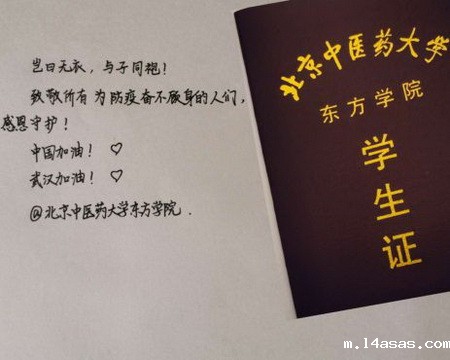 岂曰无衣，与子同袍！
致敬所有为防疫奋不顾身的人们，
感恩守护！
中国加油！♡
武汉加油！♡
@北京中医药大学东方学院.
北京中医药大学
东方学院
学生证
m.14asas.com